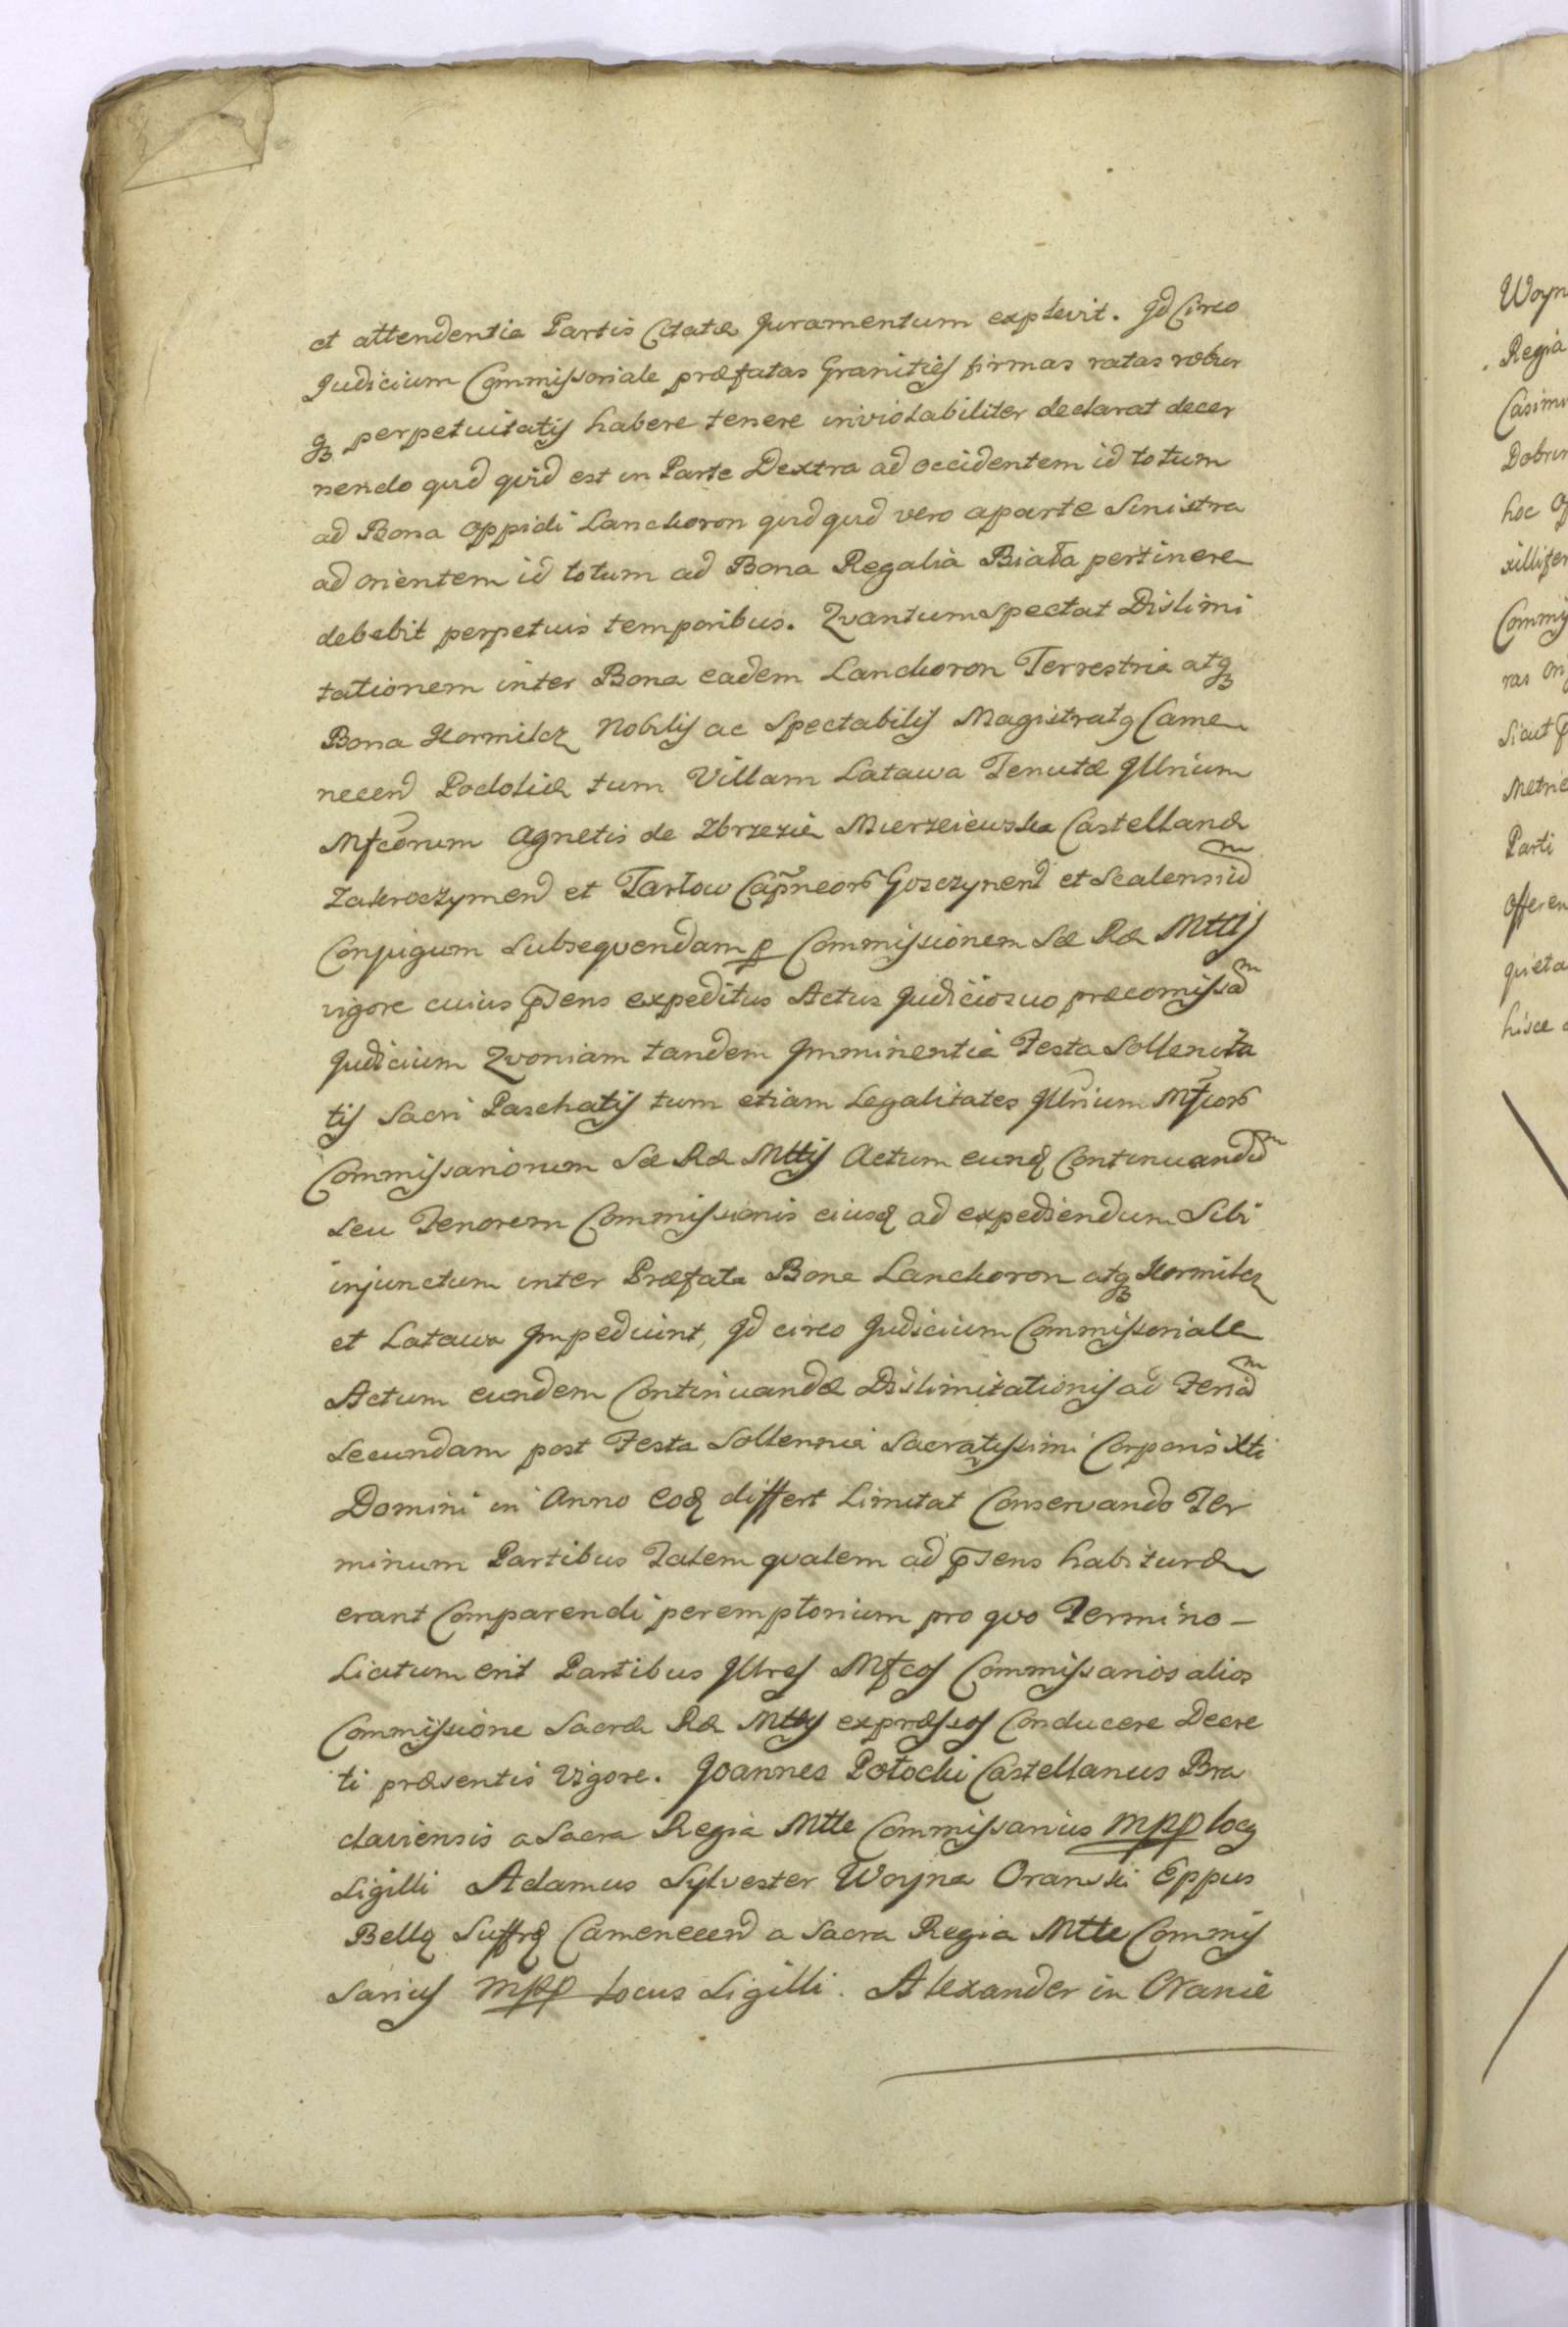 et attendentia Partis Citatæ Juramentum explevit. Id Circo
Judicium Commissoriale præfatas Granities firmas ratas robur
qz perpetuitatis habere tenere inviolabiliter declarat decer
nendo quid quid est in Parte Dextra ad occidentem id totum
ad Bona Oppidi Lanckoron quid quid vero a parte Sinistra
ad orientem id totum ad Bona Regalia Biała pertinere
debebit perpetuis temporibus. Qvantum Spectat Dislimi
tationem inter Bona eadem Lanckoron Terrestria atqz
Bona Hormilcz Nobilis ac Spectabilis Magistratq Came
necen Podoliæ tum Villam Latawa Tenutæ Illrium
Mfcorum Agnetis de Zbrzezie Mierzeiewska Castellanæ
Zakroczymen et Tarłow Capneor Goszczynen et Scalennium
Conjugum Subseqvendam p Commissionem Sæ Ræ Mttis
vigore cuius psens expeditus Actus Judicio suo præcomissam
Judicium Qvoniam tandem Imminentia Festa Sollenita
tis Sacri Paschatis tum etiam Legalitates Illrium Mfcor
Commissariorum Sæ Ræ Mttis Actum eund Continuandum
seu Tenorem Commissionis eiusd ad expediendum Sibi
injunctum inter Præfata Bona Lanckoron atqz Hormilcz
et Latawa Impediunt, Id circo Judicium Commissoriale
Actum eundem Continuandæ Dislimitationis ad Feriam
Secundam post Festa Sollennia Sacratissimi Corporis Xti
Domini in Anno eod differt Limitat Conservando Ter
minum Partibus Talem qvalem ad psens habituræ
erant Comparendi peremptorium pro qvo Termino –
Licitum erit Partibus Illres Mfcos Commissarios alios
Commissione Sacræ Ræ Mttis expræssos Conducere Decre
ti præsentis Vigore. Joannes Potocki Castellanus Bra
claviensis a Sacra Regia Mtte Commissarius mpp locq
Sigilli Adamus Sylvester Woyna Oranski Eppus
Bellq Suffrq Camenecen a Sacra Regia Mtte Commis
sarius mpp Locus Sigilli. Alexander in Oranie
Woyn
Regia
Casimi
Dobr
hoc
Parti
hisce